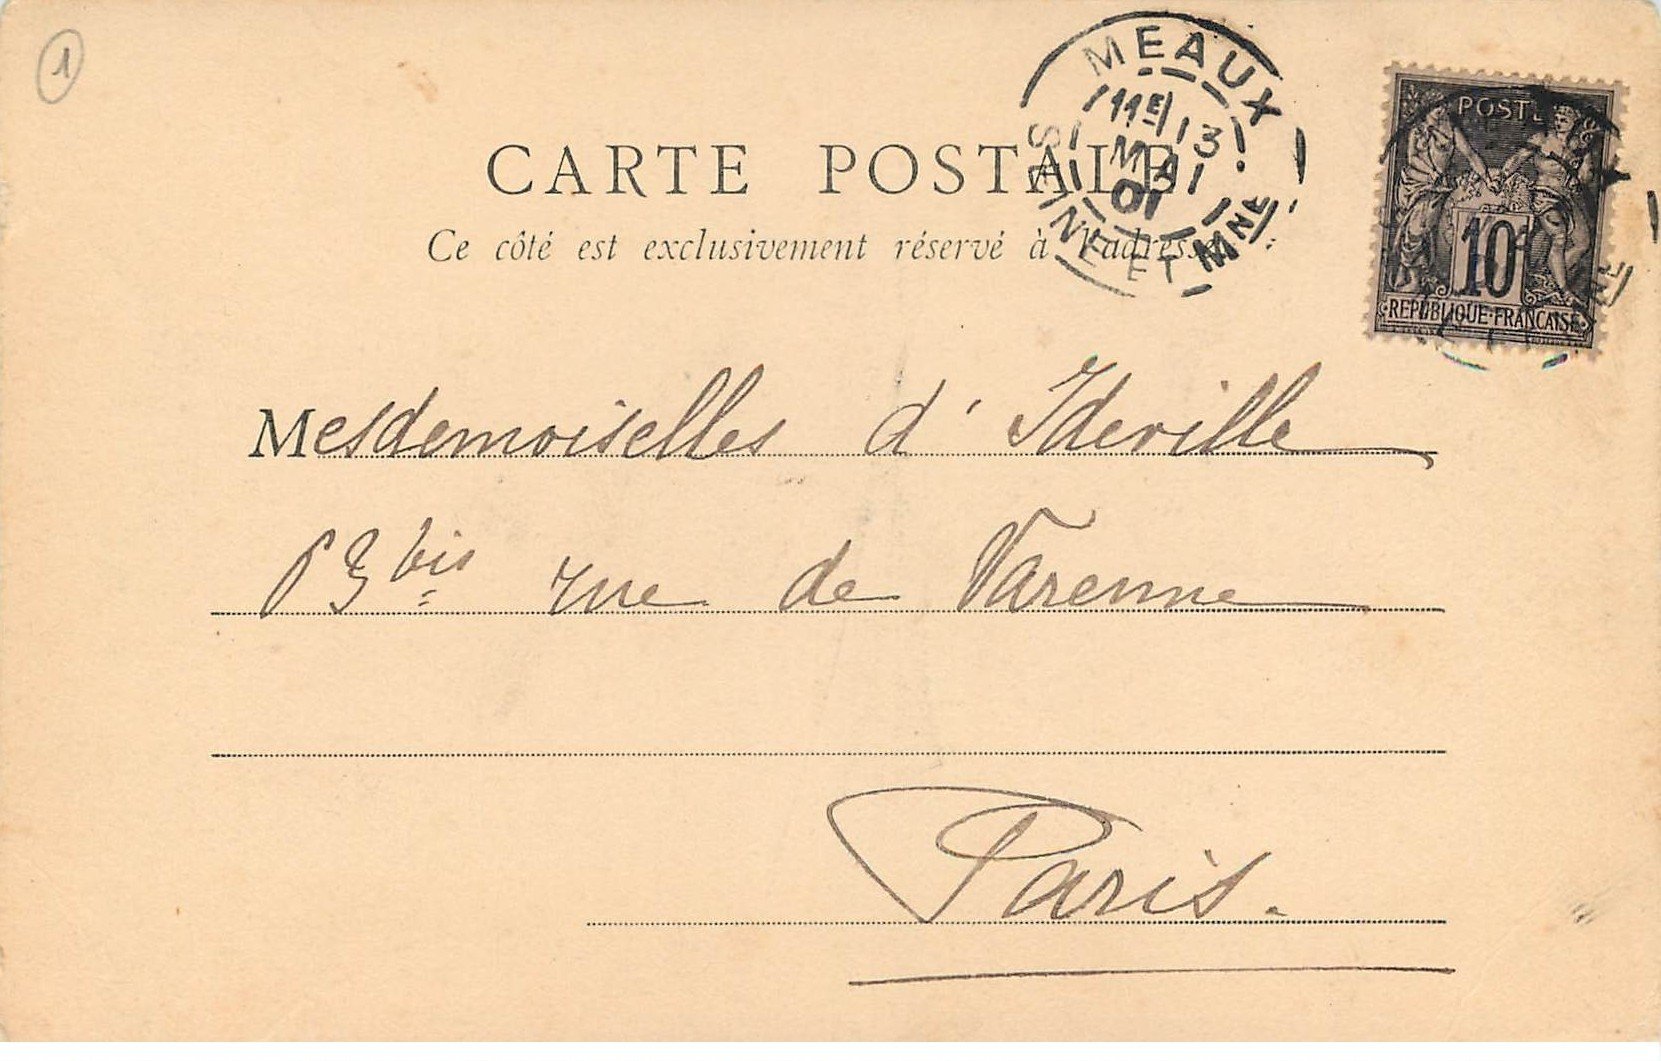 1
MEAUX
11E 13
MAI
01
SEINE ET MNE
POSTE
10c
REPUBLIQUE·FRANCAISE
CARTE POSTALE
Ce côté est exclusivement réservé à l'adresse
Mesdemoiselles d'Ideville
bis rue de Varenne
Paris.